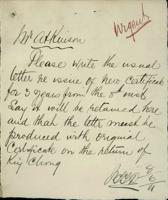 Urgent
Mr Atkinson
Please write the usual
letter re issue of new Certificate
for 3 years from the 8th inst
Say it will be retained here
and that the letter must be
produced with original
Certificate on the return of
King Chong